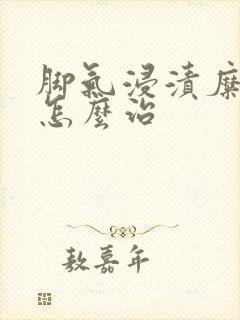 脚氣浸漬糜
怎麼治
敖嘉年